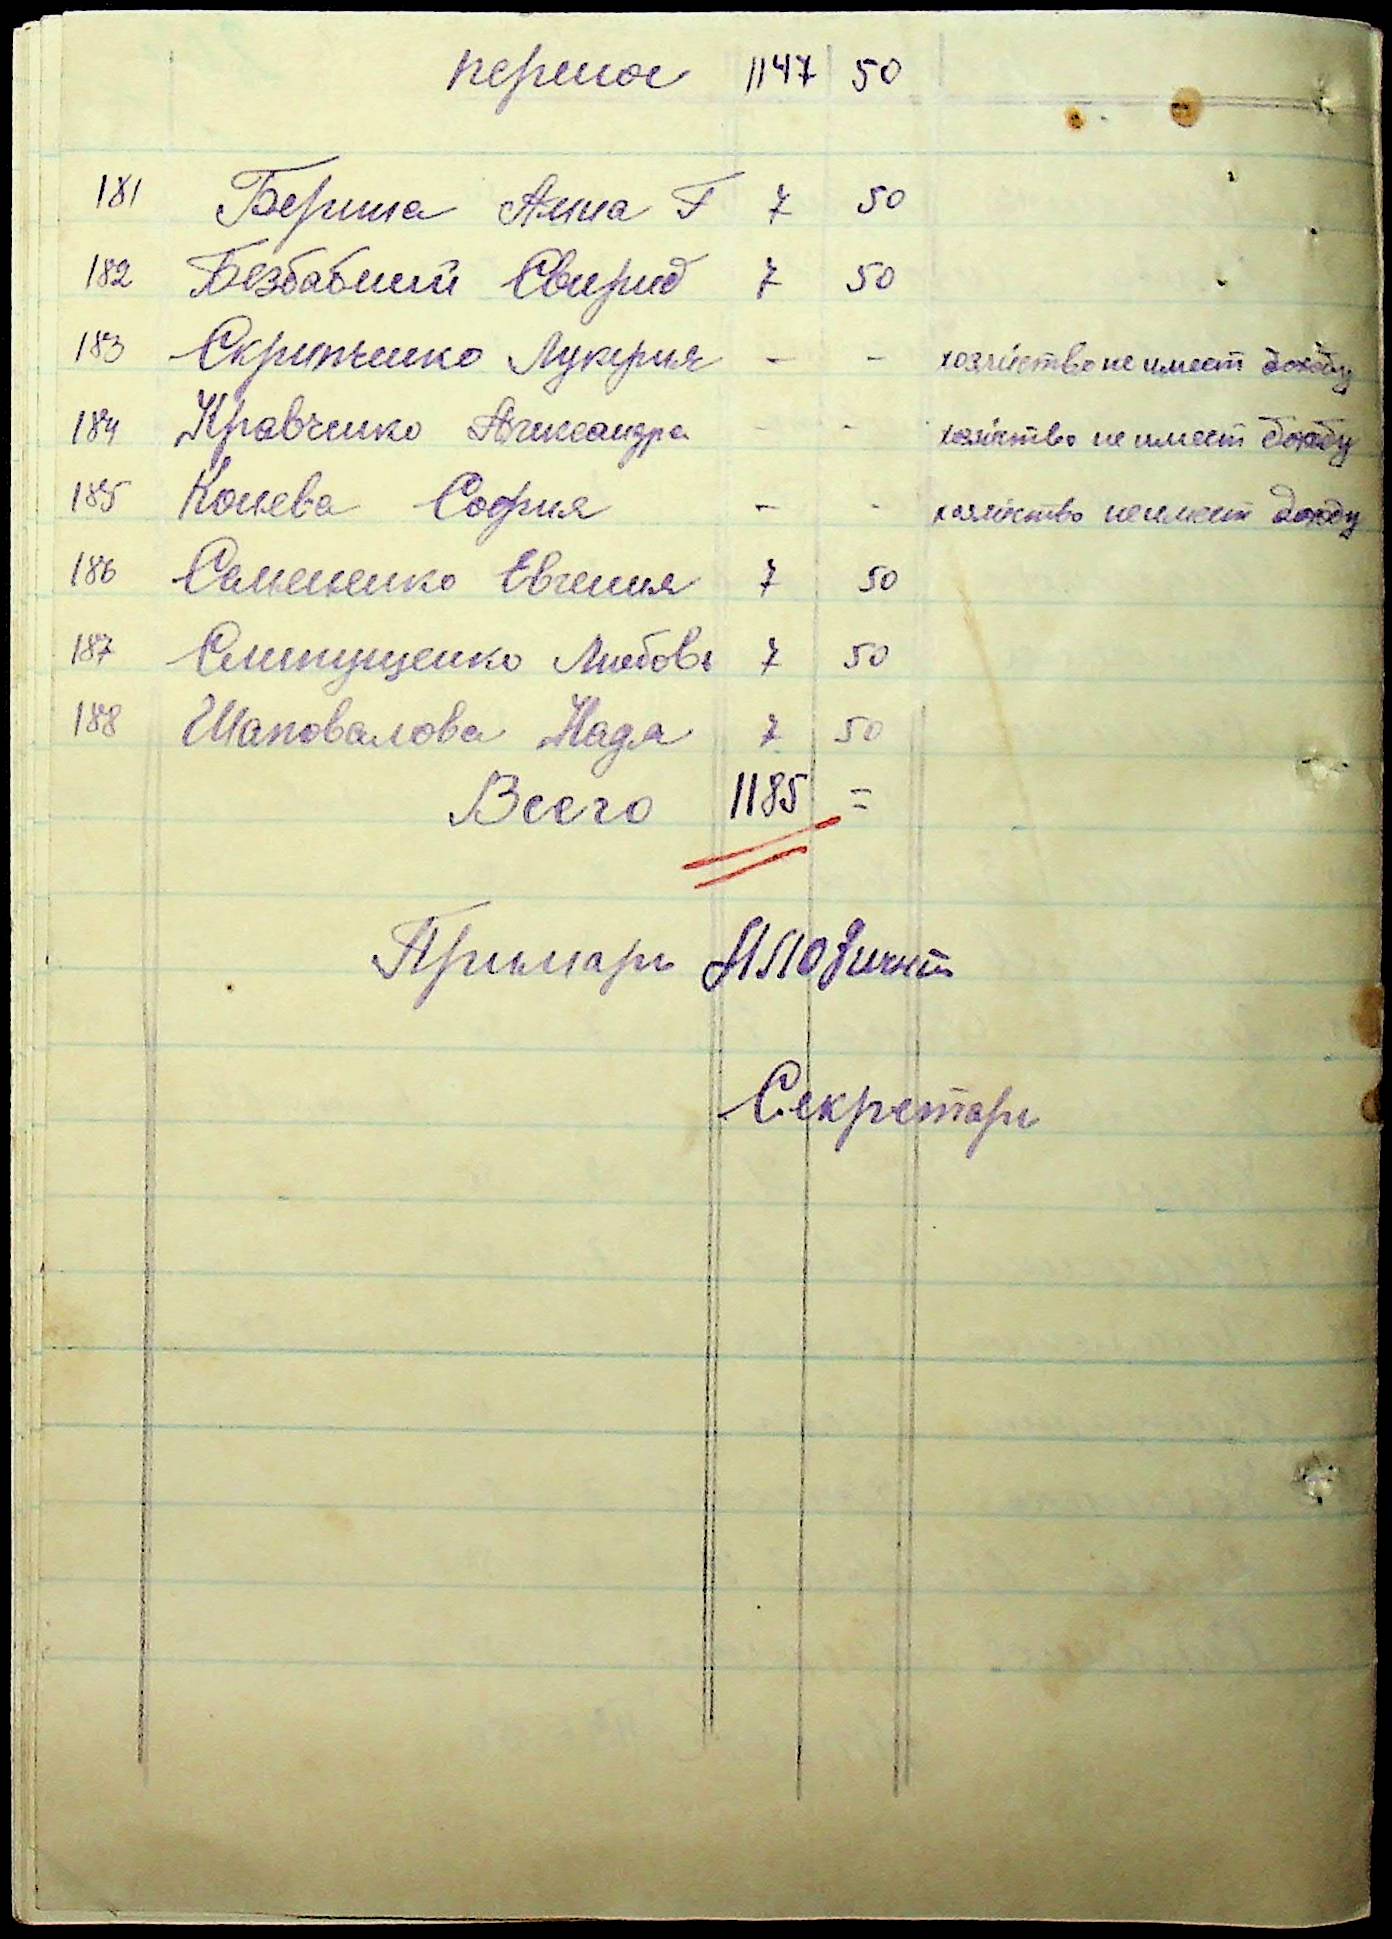 перенос 1147 50
181 Берина Анна Г 7 50
182 Безбабний Свирид 7 50
183 Скрипченко Лукерия - - хозяйство не имеет
184 Кравченко Александра - - хозяйство не имеет
185 Конева София - - хозяйство не имеет
186 Семененко Евгения 7 50
187 Слипущенко Любовь 7 50
188 Шаповалова Надя 7 50
Всего 1185 =
Примарь
Секретарь